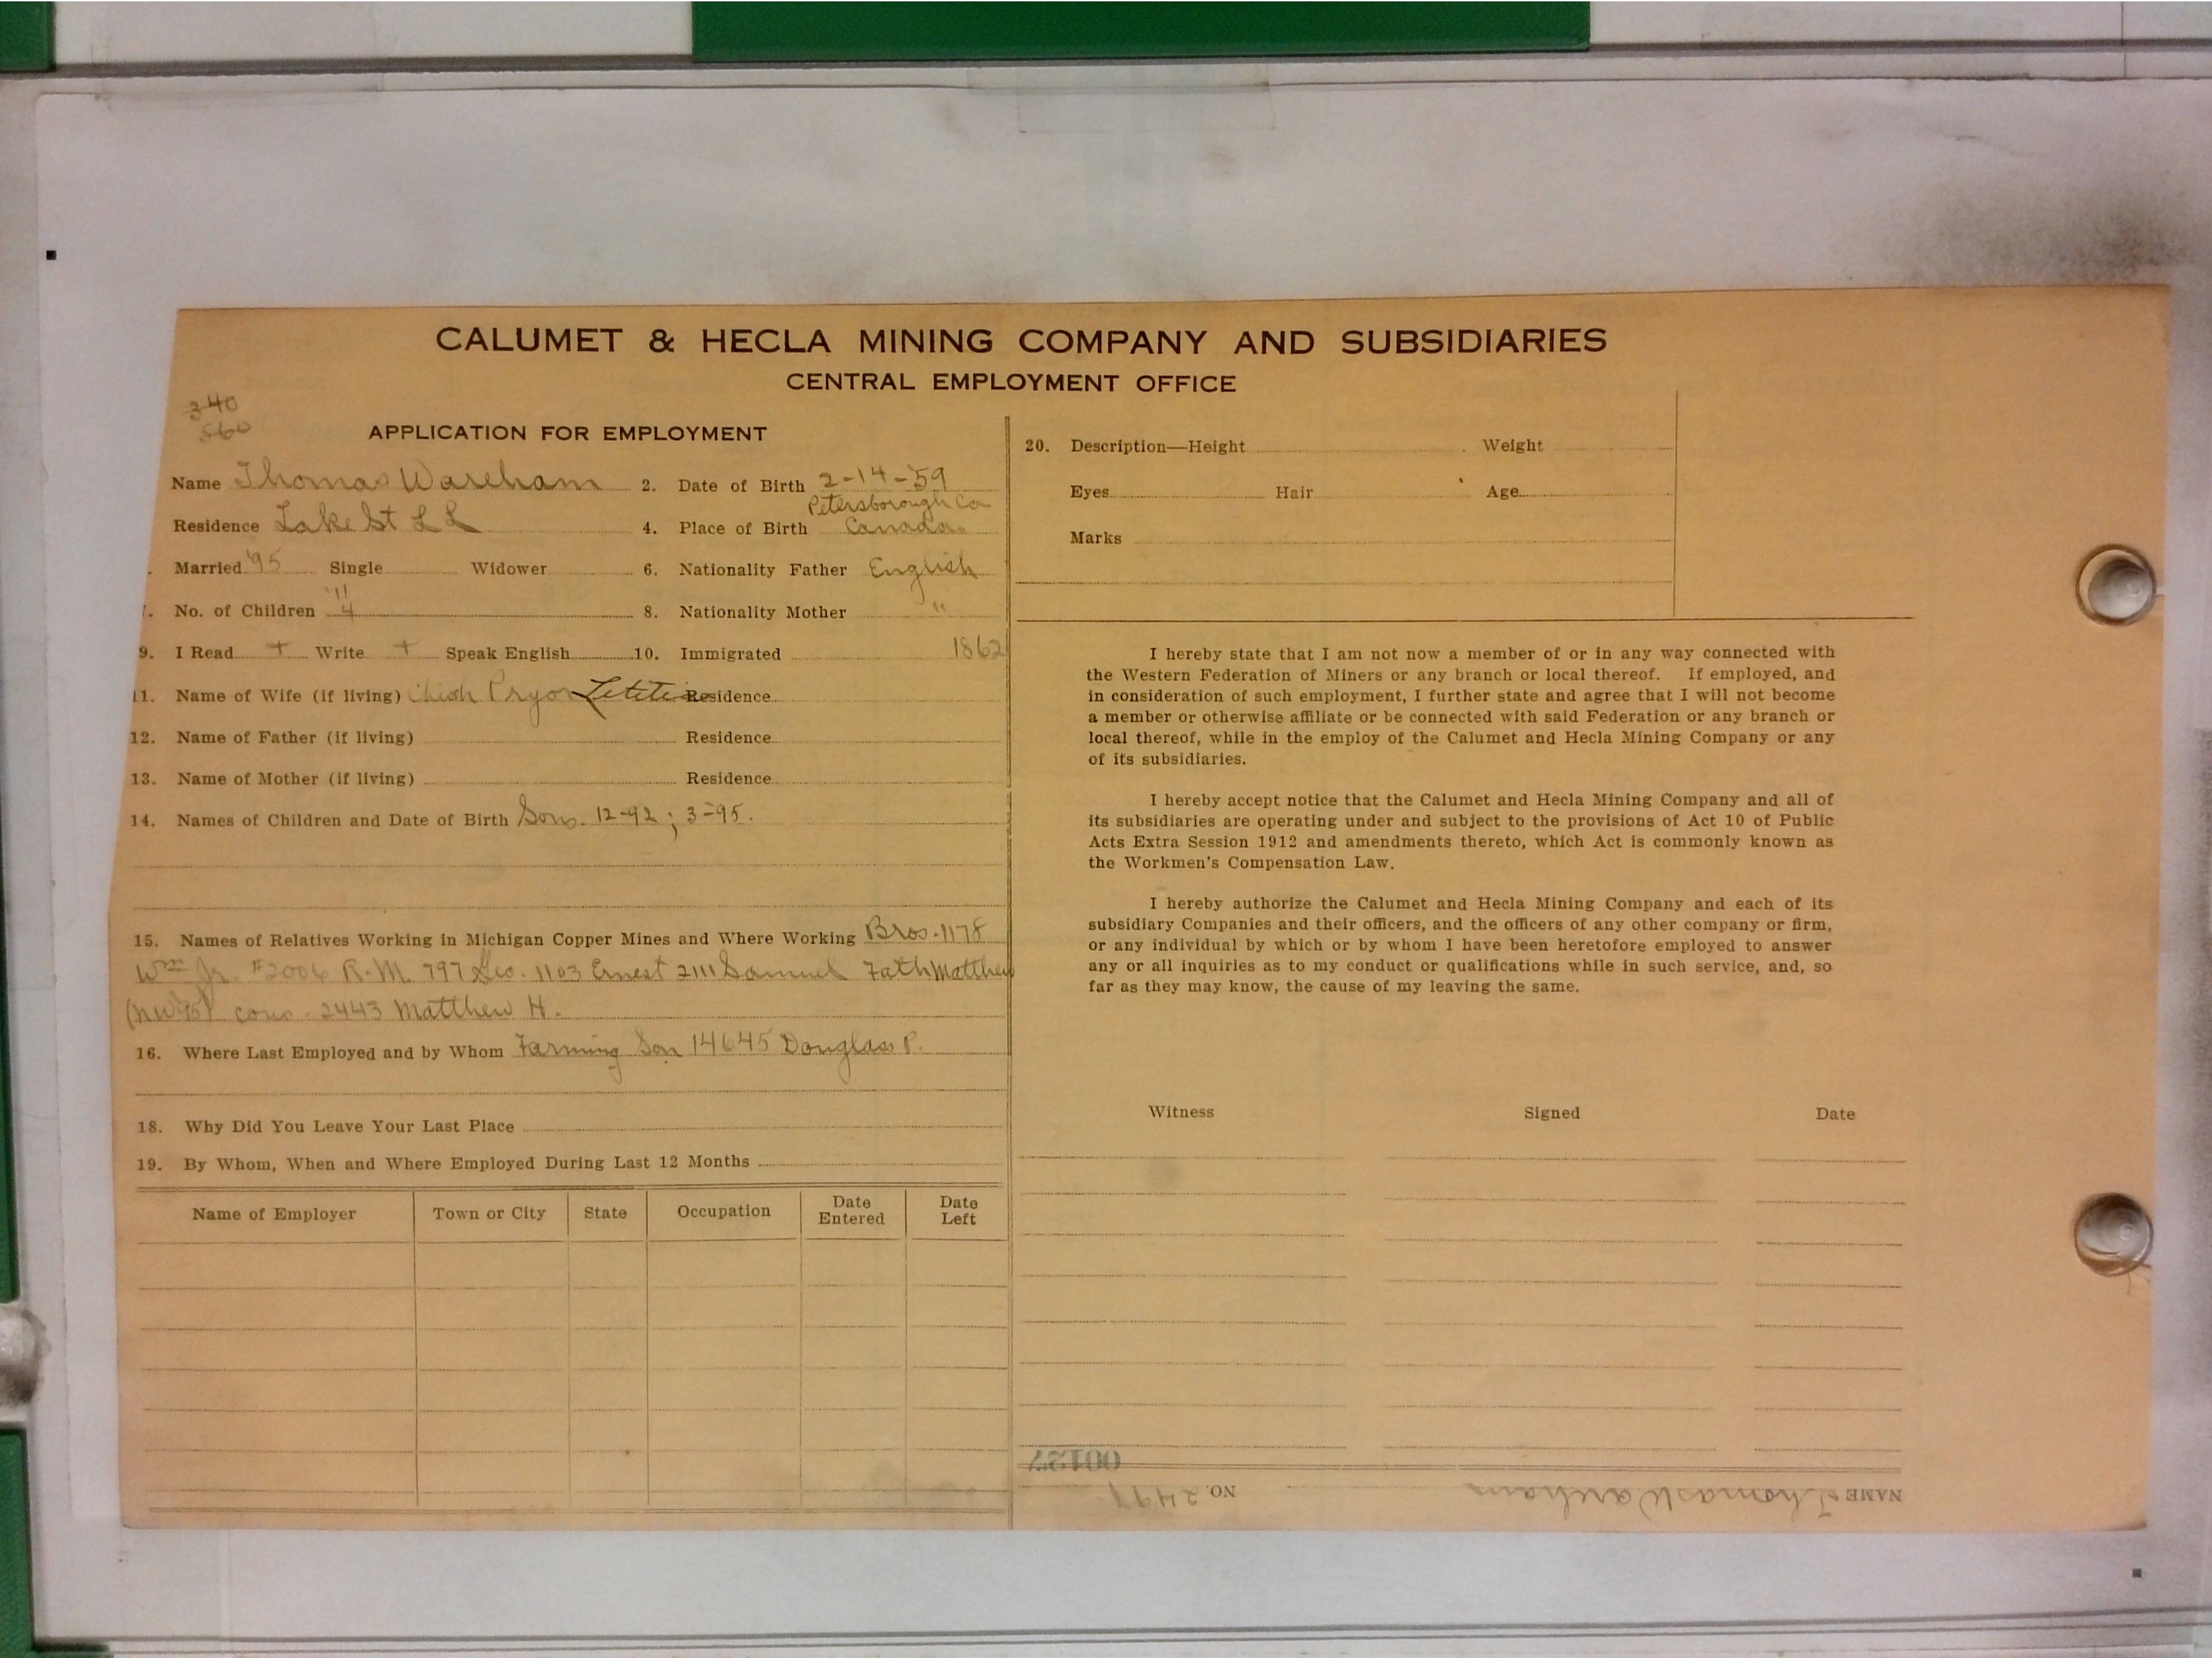 CALUMET & HECLA MINING COMPANY AND SUBSIDIARIES
CENTRAL EMPLOYMENT OFFICE
340
560
APPLICATION FOR EMPLOYMENT
Name Thomas Wareham 2. Date of Birth 2-14-'59
Petersborough Co
Residence Lake St L L 4. Place of Birth Canada
Married '95 Single Widower 6. Nationality Father English
'11
No. of Children 4 8. Nationality Mother "
9. I Read + Write + Speak English 10. Immigrated 1862
11. Name of Wife (if living) Pryor Letitia Residence
12. Name of Father (if living) Residence
13. Name of Mother (if living) Residence
14. Names of Children and Date of Birth Sons. 12-92; 3-95.
15. Names of Relatives Working in Michigan Copper Mines and Where Working Bros. 1178
Wm Jr. #2006 R.M. 797 Geo. 1103 Ernest 2111 Samuel Fath Matthew
(NW 95) cous. 2443 Matthew H.
16. Where Last Employed and by Whom Farming Son 14645 Douglas P.
18. Why Did You Leave Your Last Place
19. By Whom, When and Where Employed During Last 12 Months
Name of Employer Town or City State Occupation Date Entered Date Left
20. Description—Height Weight
Eyes Hair Age
Marks
I hereby state that I am not now a member of or in any way connected with
the Western Federation of Miners or any branch or local thereof. If employed, and
in consideration of such employment, I further state and agree that I will not become
a member or otherwise affiliate or be connected with said Federation or any branch or
local thereof, while in the employ of the Calumet and Hecla Mining Company or any
of its subsidiaries.
I hereby accept notice that the Calumet and Hecla Mining Company and all of
its subsidiaries are operating under and subject to the provisions of Act 10 of Public
Acts Extra Session 1912 and amendments thereto, which Act is commonly known as
the Workmen's Compensation Law.
I hereby authorize the Calumet and Hecla Mining Company and each of its
subsidiary Companies and their officers, and the officers of any other company or firm,
or any individual by which or by whom I have been heretofore employed to answer
any or all inquiries as to my conduct or qualifications while in such service, and, so
far as they may know, the cause of my leaving the same.
Witness Signed Date
NAME Thomas Wareham NO. 2497
00127